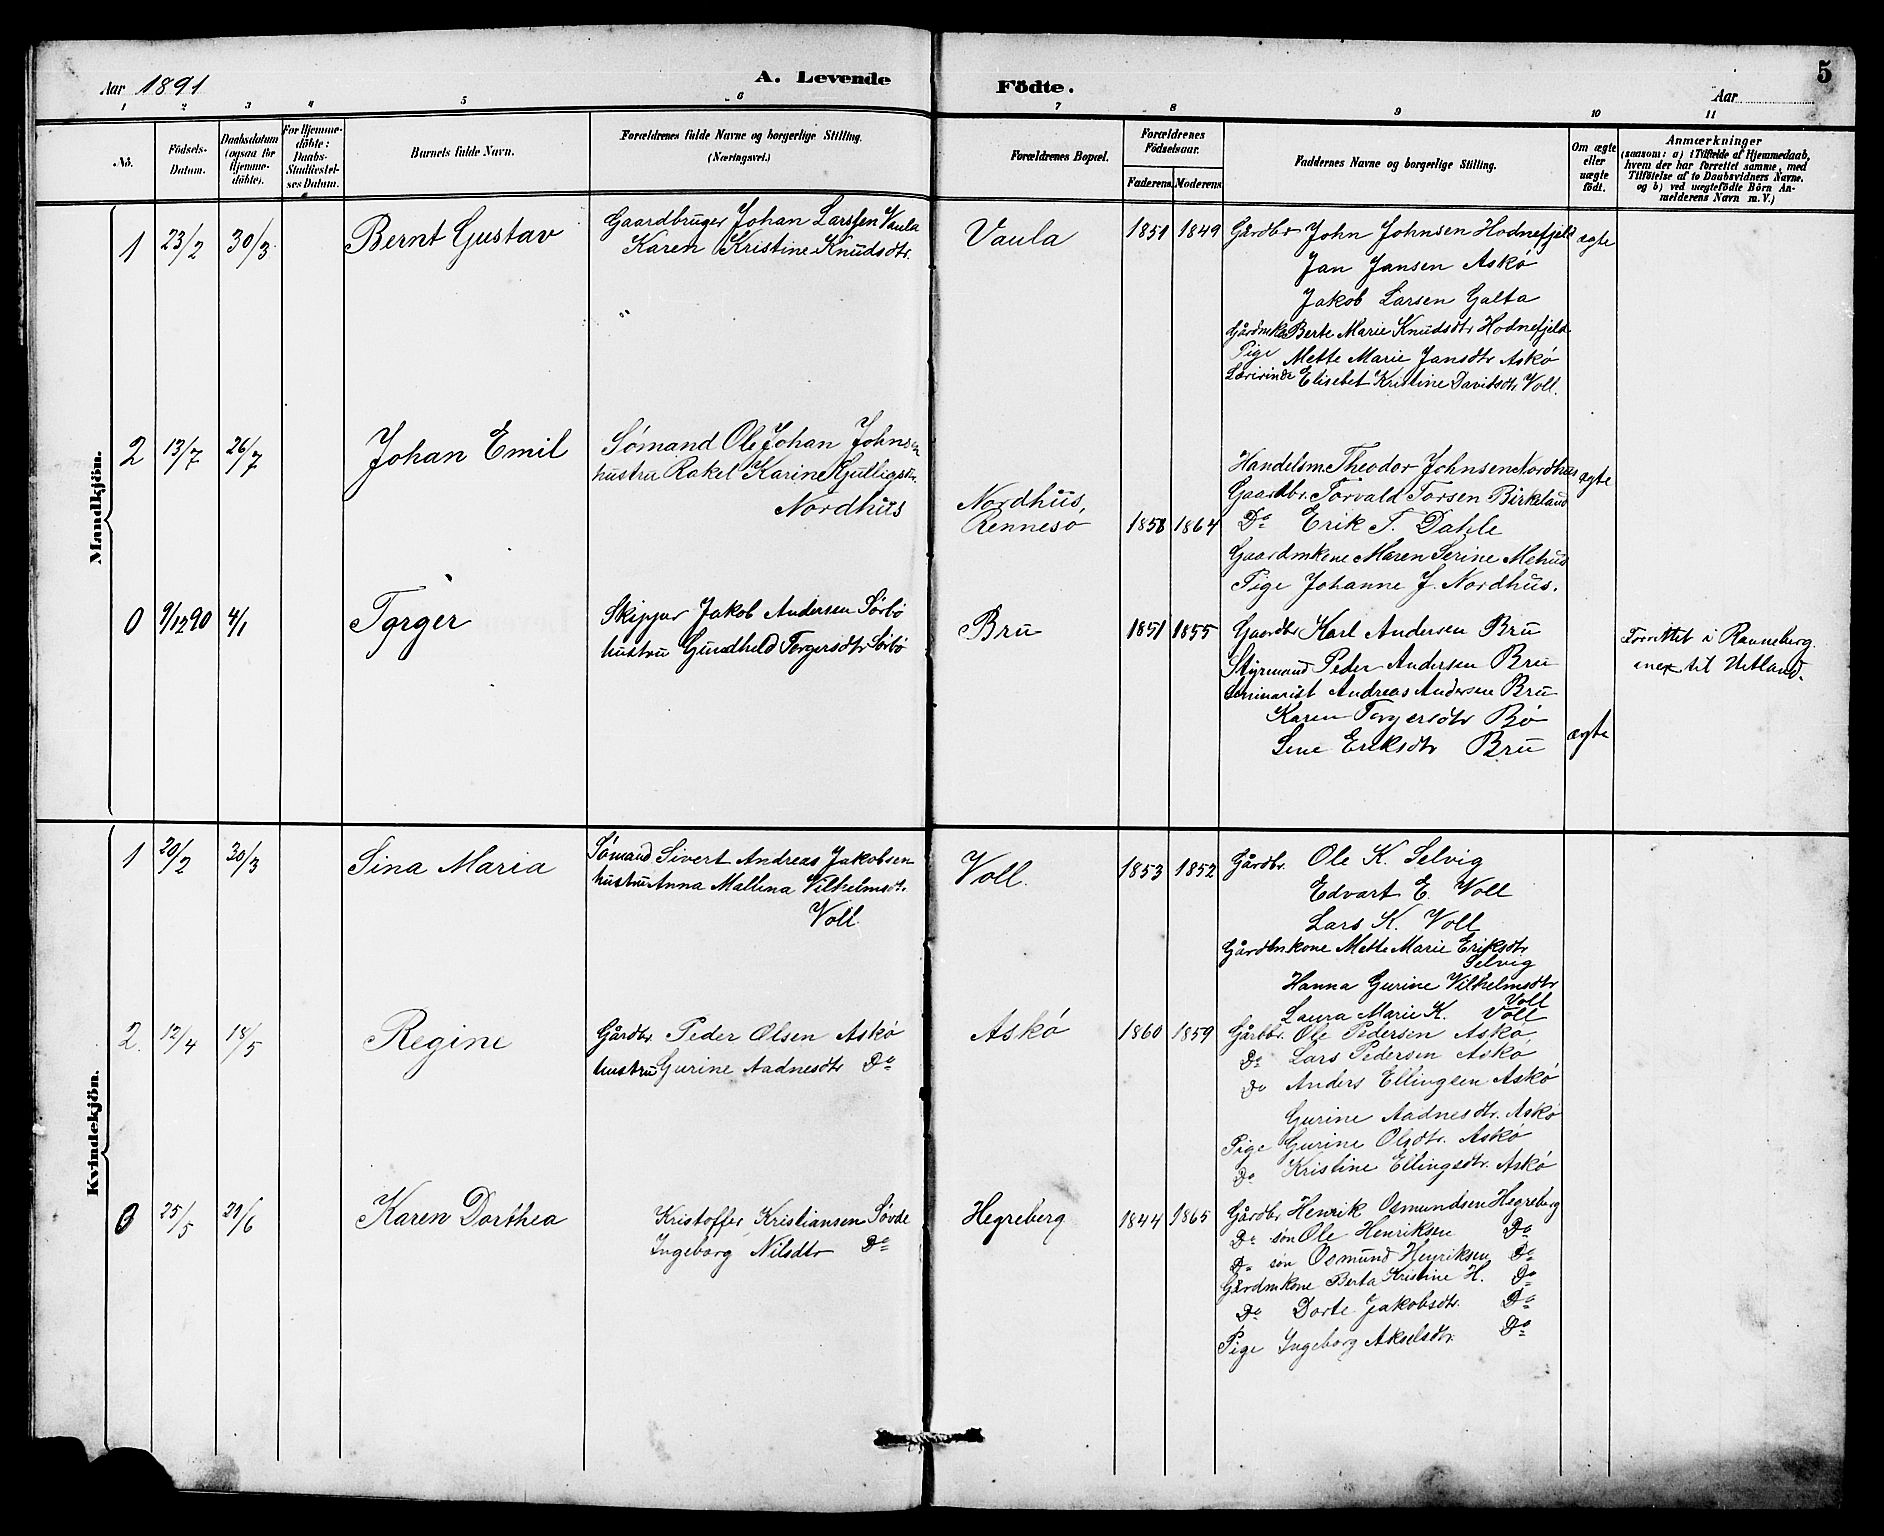 Aar 1891
A. Levende
Födte.
Aar
5
1 2 3 4 5 6 7 8 9 10 11
No.
Födsels-
Datum.
Daabsdatum
(ogsaa for
Hjemme-
döbte).
For Hjemme-
döbte:
Daabs-
Stadfæstel-
ses Datum.
Barnets fulde Navn.
Forældrenes fulde Navne og borgerlige Stilling.
(Næringsvei.)
Forældrenes Bopæl.
Forældrenes
Födselsaar.
Faderens. Moderens
Faddernes Navne og borgerlige Stilling.
Om ægte
eller
uægte
födt.
Anmærkninger
(saasom: a) i Tilfælde af Hjemmedaab,
hvem der har forrettet samme, med
Tilföielse af to Daabsvidners Navne.
og b) ved uægtefödte Börn An-
melderens Navn m. V.)
Mandkjön.
1 23/2 30/3 Bernt Gustav
Gaardbruger Johan Larssen Vaula
Karen Kristine Knudsdtr.
Vaula 1851 1849
Gårdbr John Johnsen Hodnefjeld
ægte
Jan Jansen Askö
Jakob Larsen Galta
Berte Marie Knudsdtr Hodnefjeld
Pige Mette Marie Jansdtr Askö
Elisebet Kristine Davidsdtr Voll.
2 13/7 26/7 Johan Emil
Sömand Ole Johan Johnsen
hustru Rakel Karine
Nordhus
Nordhus,
Rennesö 1858 1864
Handelsm. Theodor Johnsen Nordhus
ægte
Gaardbr. Torvald Torsen Birkeland
Do Erik T. Dahle
Gaardmkone Maren Serine Mehus
Pige Johanne J. Nordhus.
0 9/12 90 4/1 Torger
Skipper Jakob Andersen Sörbö
hustru Gundheld Torgersdtr Sörbö
Bru 1851 1855
Gaardbr Karl Andersen Bru
Styrmand Peder Andersen Bru
Seminarist Andreas Andersen Bru
Karen Torgersdtr Bö
Sene Eriksdtr Bru
ægte
Forrettet i Ranneberg
til Utland.
Kvindekjön.
1 20/2 30/3 Sina Maria
Sömand Sivert Andreas Jakobsen
hustru Anna Mallena Vilhelmsdt.
Voll
Voll. 1853 1852
Gårdbr. Ole K. Selvig
Edvart E. Voll
Lars K. Voll
Gårdmkone Mette Marie Eriksdtr
Selvig
Hanna Gurine Vilhelmsdtr
Voll
Laura Marie K. Voll
2. 12/4 18/5 Regine
Gårdbr. Peder Olsen Askö
hustru Gurine Aadnesdtr Do
Askö 1860 1859
Gårbbr. Ole Pedersen Askö,
Do Lars Pedersen Askö
Do Anders Ellingsen Askö
Gurine Aadnesdtr. Askö
Pige Gurine Olsdtr. Askö
Do Kristine Ellingsdtr. Askö
0 25/5 29/6 Karen Dorthea
Kristoffer Kristiansen Sövde
Ingeborg Nilsdtr Do
Hegreberg 1844 1865
Gårdbr Henrik Osmundsen Hegreberg
Do sön Ole Henriksen Do
Do sön Osmund Henriksen Do
Gårdmkone Berta Kristine H. Do
Do Dorte Jakobsdtr. Do
Pige Ingeborg Akselsdtr. Do